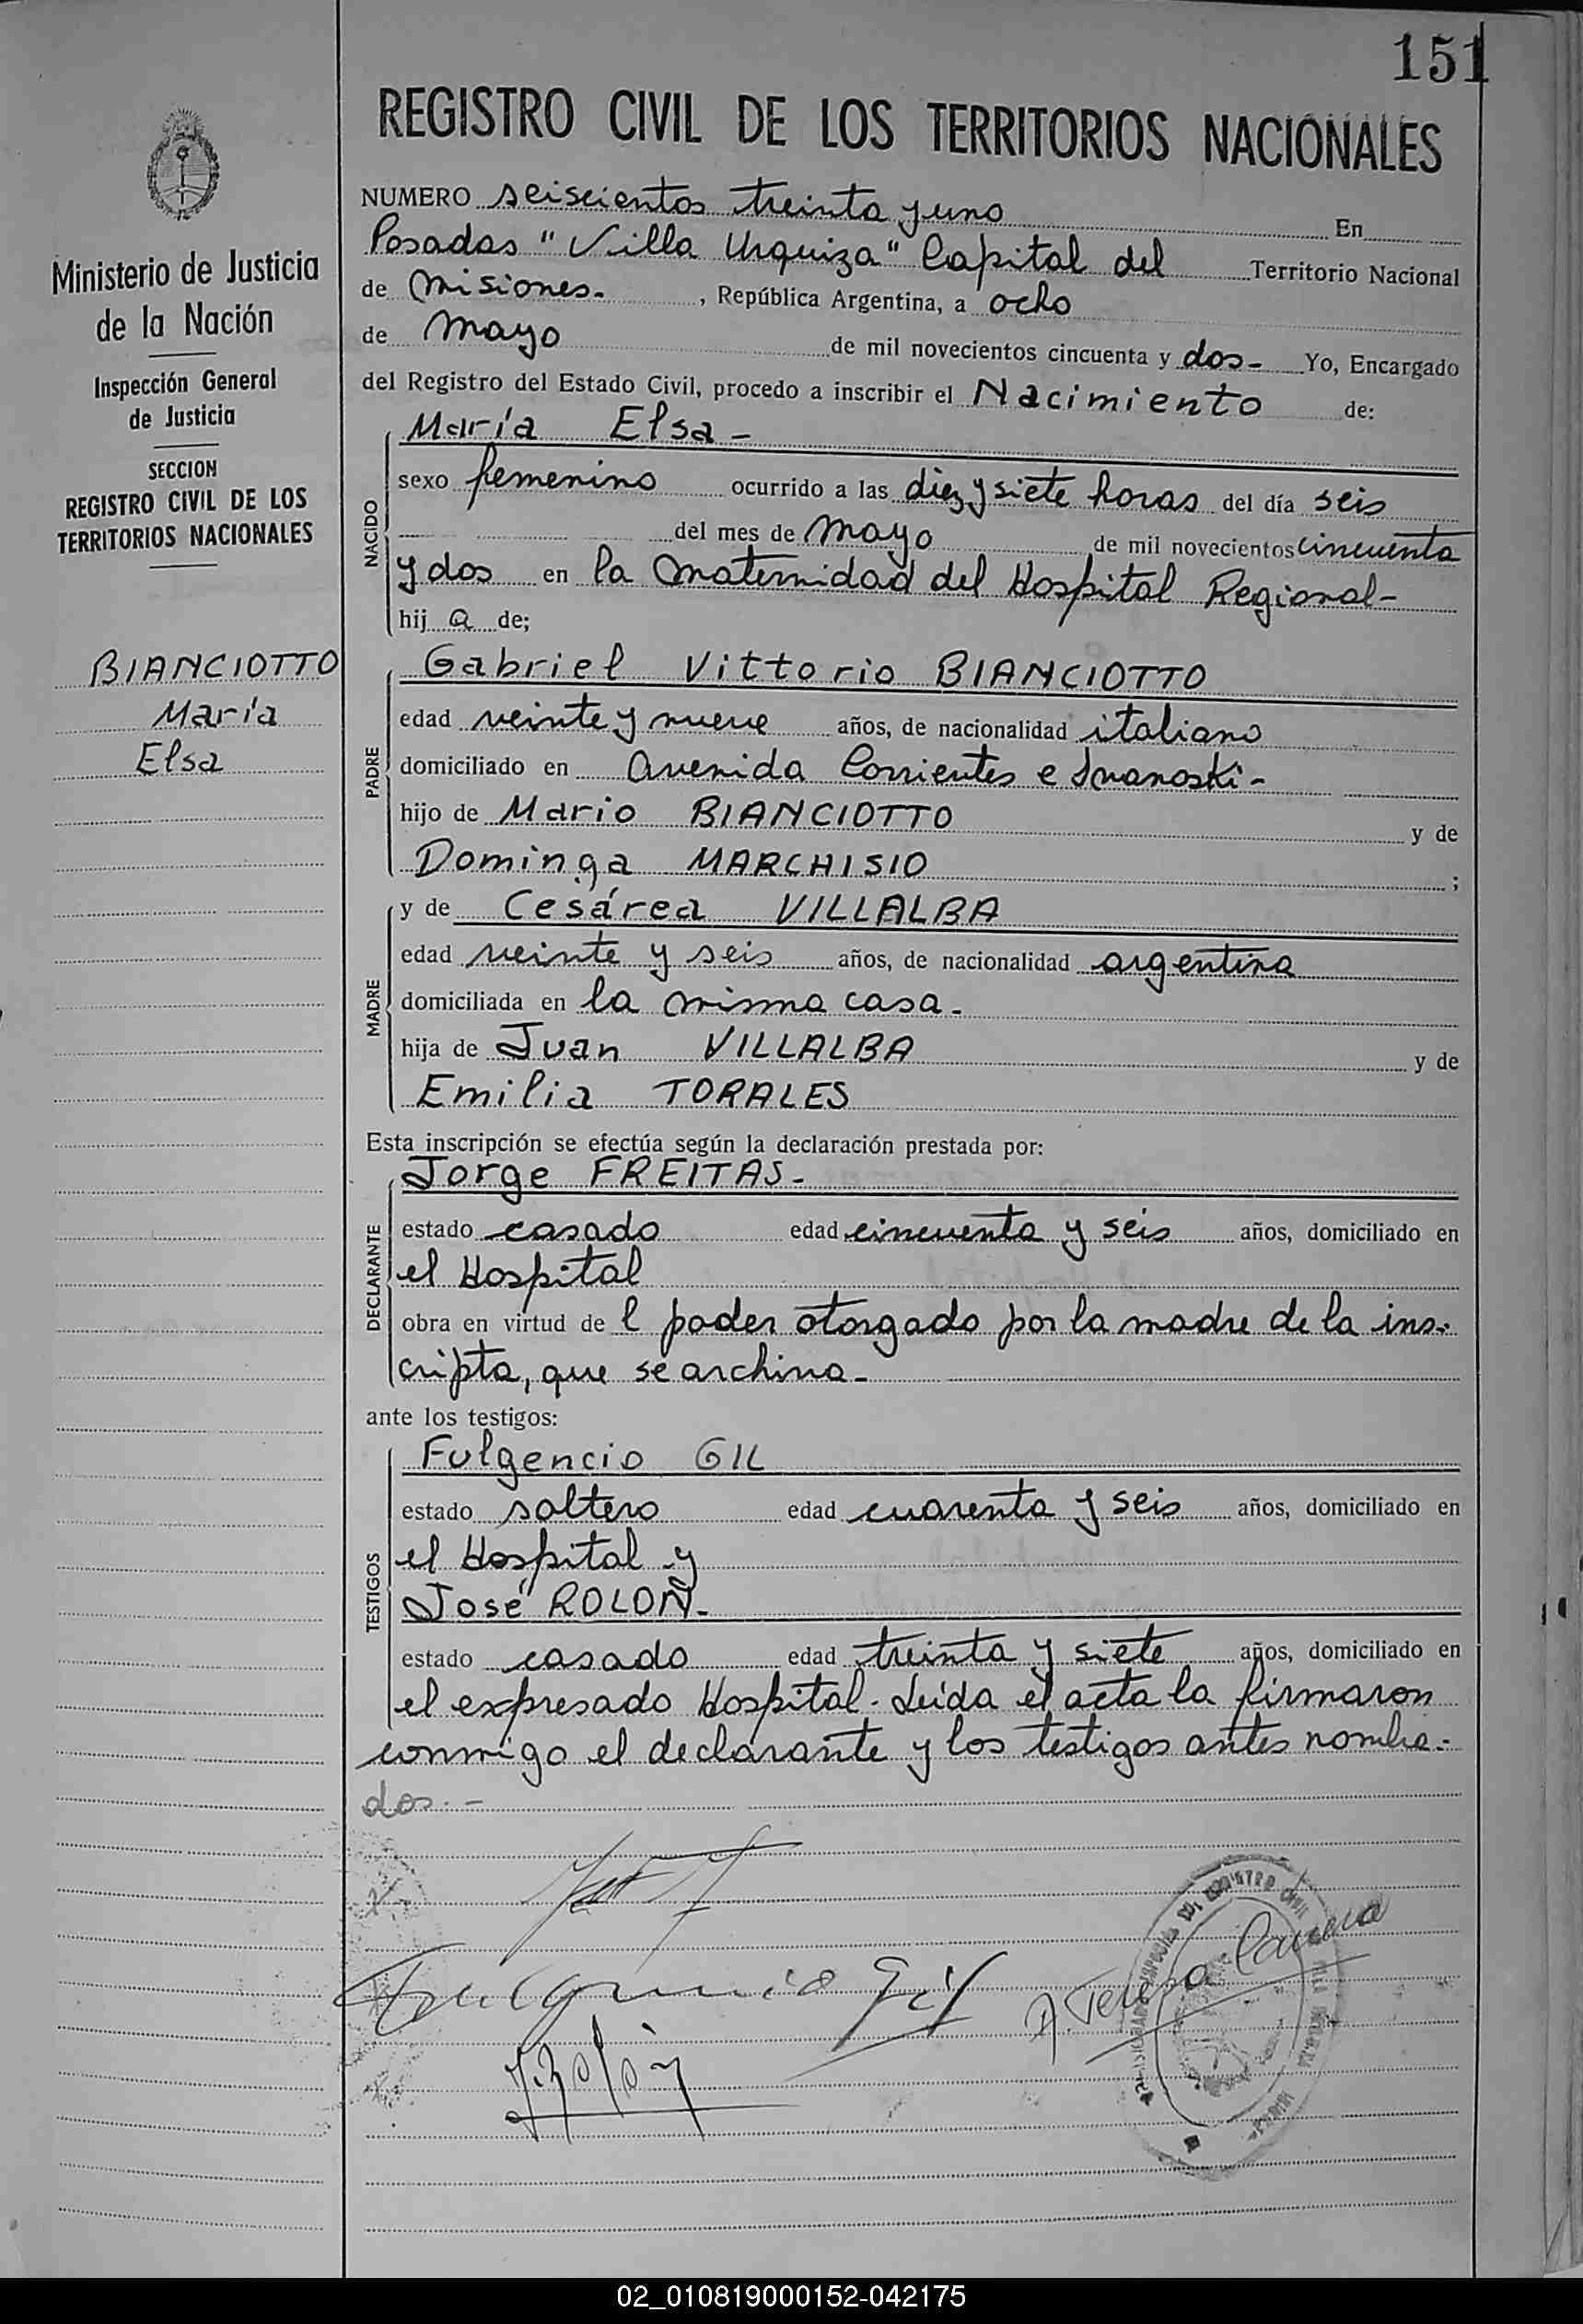 151
REGISTRO CIVIL DE LOS TERRITORIOS NACIONALES
Ministerio de Justicia
de la Nación
Inspección General
de Justicia
SECCION
REGISTRO CIVIL DE LOS
TERRITORIOS NACIONALES
BIANCIOTTO
María
Elsa
NUMERO seiscientos treinta y uno En
Posadas "Villa Urquiza" Capital del Territorio Nacional
de Misiones- , República Argentina, a ocho
de mayo de mil novecientos cincuenta y dos- Yo, Encargado
del Registro del Estado Civil, procedo a inscribir el Nacimiento de:
NACIDO
María Elsa-
sexo femenino ocurrido a las diez y siete horas del día seis
del mes de mayo de mil novecientos cincuenta
y dos en la Maternidad del Hospital Regional-
hij a de;
PADRE
Gabriel Vittorio BIANCIOTTO
edad veinte y nueve años, de nacionalidad italiano
domiciliado en Avenida Corrientes e Ivanoski-
hijo de Mario BIANCIOTTO y de
Dominga MARCHISIO ;
MADRE
y de Cesárea VILLALBA
edad veinte y seis años, de nacionalidad argentina
domiciliada en la misma casa-
hija de Juan VILLALBA y de
Emilia TORALES
Esta inscripción se efectúa según la declaración prestada por:
DECLARANTE
Jorge FREITAS-
estado casado edad cincuenta y seis años, domiciliado en
el Hospital
obra en virtud de l poder otorgado por la madre de la ins-
cripta, que se archiva-
ante los testigos:
TESTIGOS
Fulgencio GIL
estado soltero edad cuarenta y seis años, domiciliado en
el Hospital y
José ROLON-
estado casado edad treinta y siete años, domiciliado en
el expresado Hospital. Leída el acta la firmaron
conmigo el declarante y los testigos antes nombra-
dos.-
Fulgencio Gil
J. Rolón
02_010819000152-042175